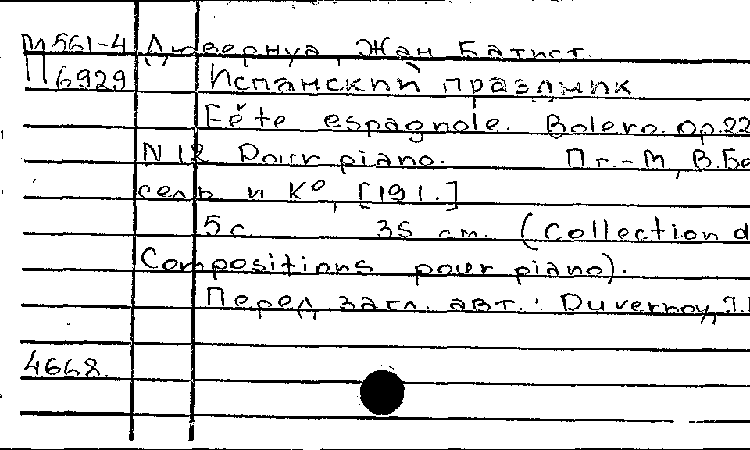 М561-4 Дювернуа, Жан Батист.
П6929 Испанский праздник
Fête espagnole. Bolero. op.22
N 12 Pour piano. Пг.-М, В.Бе
сель и Kº, [191.]
5 с. 35 см. (Collection d
Compositions pour piano).
Перед загл. авт.: Duvernoy, J.
4668.